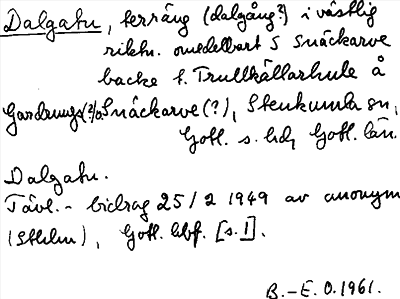 Dalgatu, terräng (dalgång?) i västlig
riktn. omedelbart S Snäckarve
backe t. Trullkällarhule å
Gardrungs(?)/Snäckarve (?), Stenkumla sn,
Gotl. s. hd, Gotl. län.
Dalgatu.
Tävl.- bidrag 25/2 1949 av anonym
(Sthlm), Gotl. hbf. [s. 1].
B.-E. O. 1961.